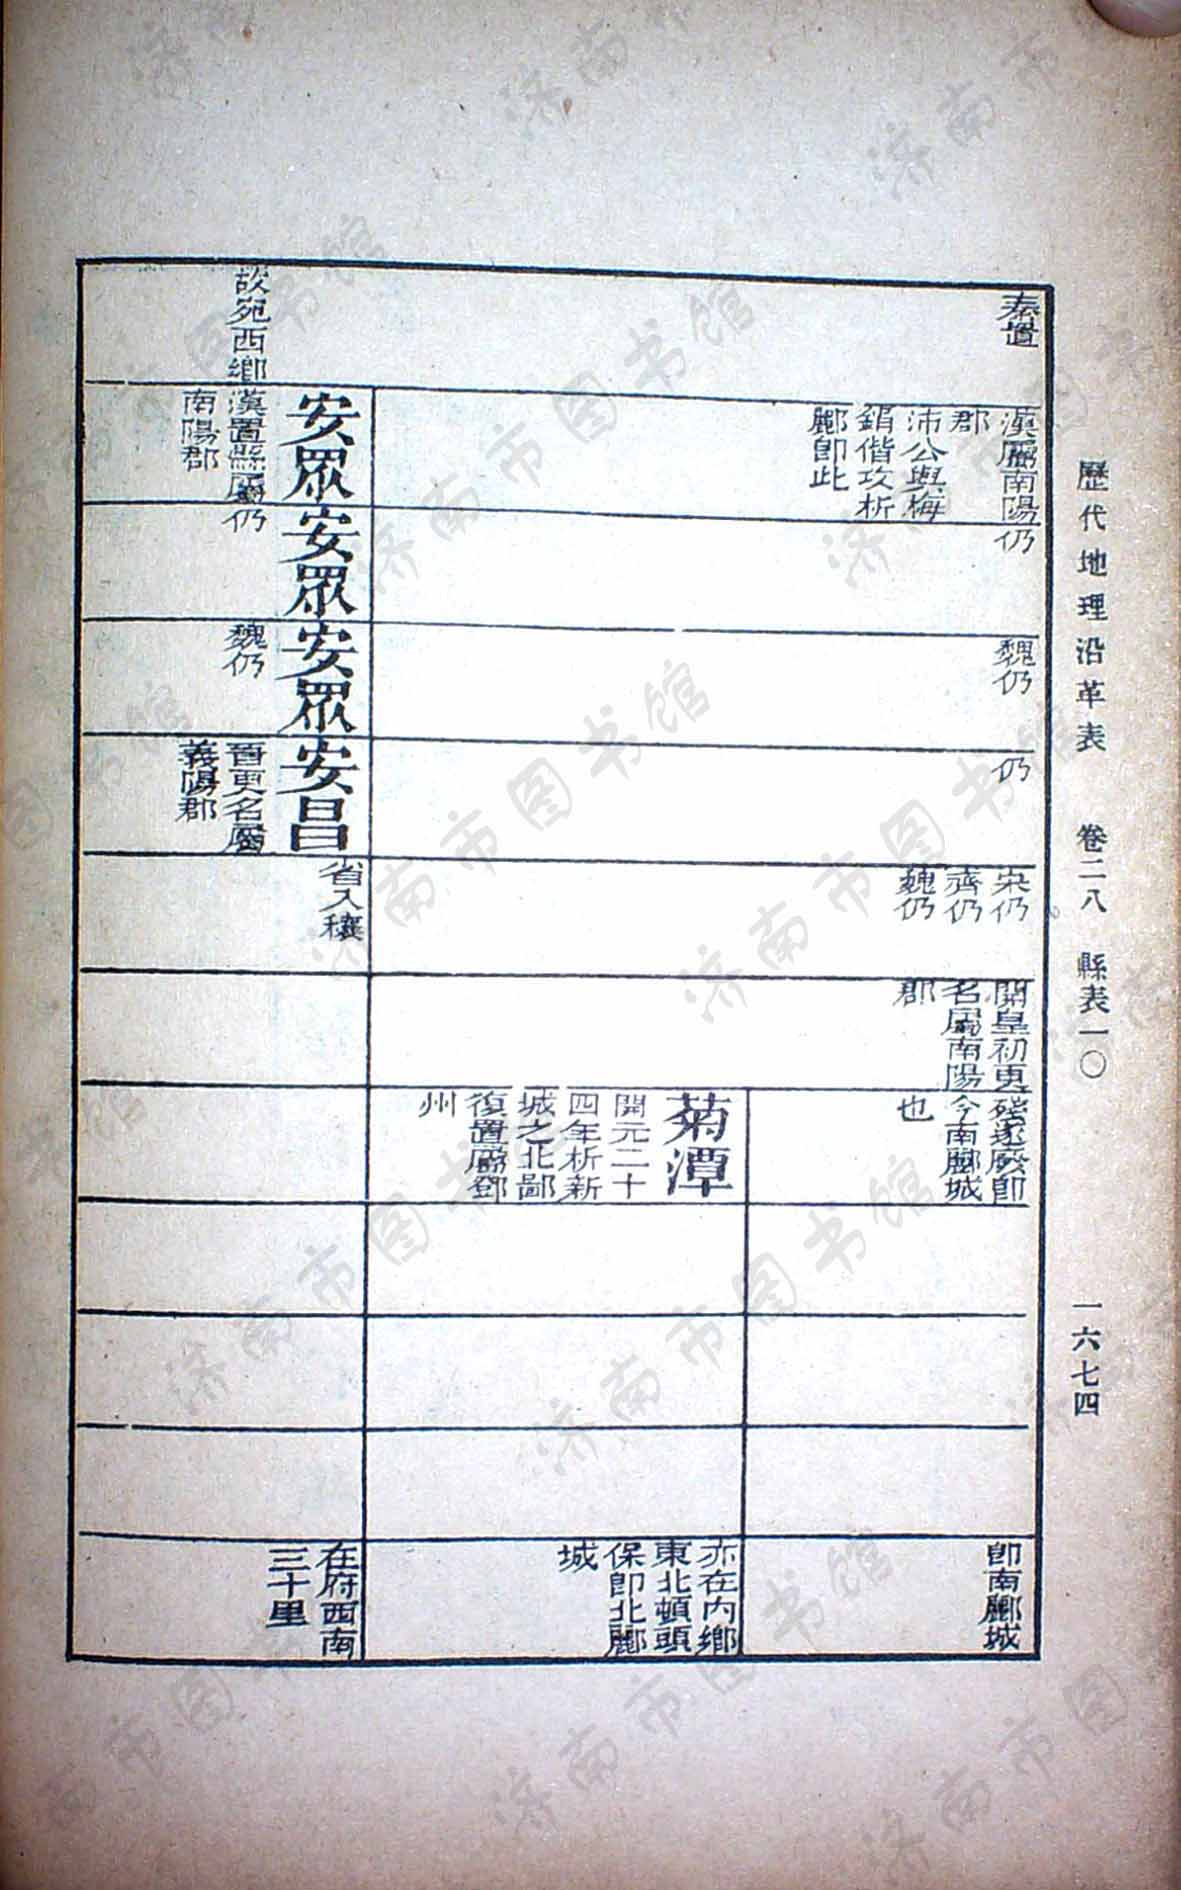 歷代地理沿革表　卷二八　縣表一〇　一六七四
秦置
漢屬南陽
郡
沛公與梅
鋗偕攻析
酈卽此
仍
魏仍
仍
宋仍
齊仍
魏仍
開皇初更
名屬南陽
郡
遂廢卽
今南酈城
也
卽南酈城
菊潭
開元二十
四年析新
城之北鄙
復置屬鄧
州
亦在內鄉
東北頓頭
保卽北酈
城
故宛西鄉
安眾
漢置縣屬
南陽郡
安眾
仍
安眾
魏仍
安昌
晉更名屬
義陽郡
省入穰
在府西南
三十里
济南市图书馆